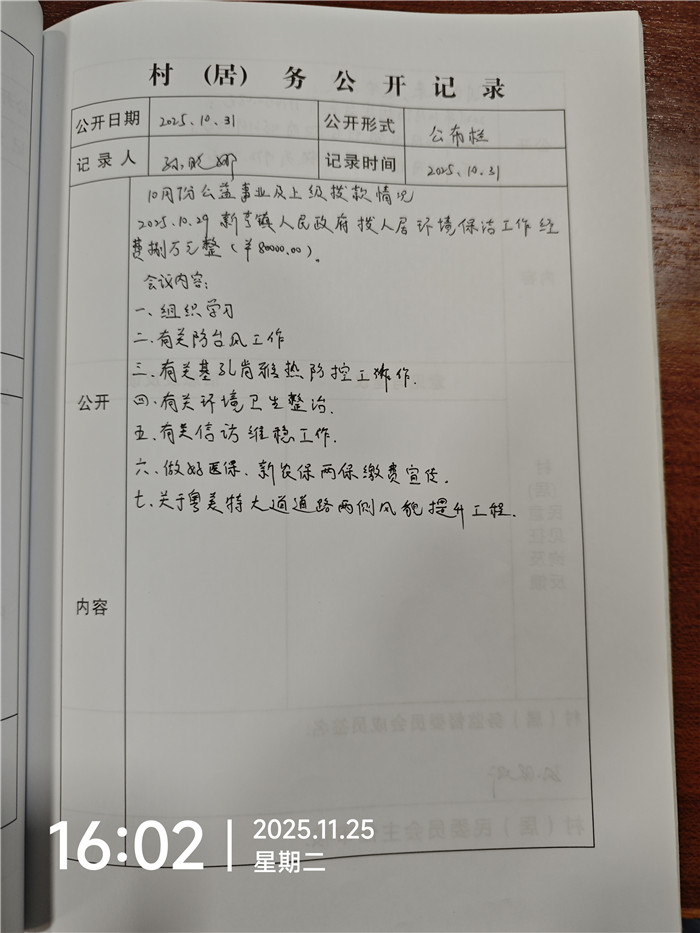 村（居）务公开记录
公开日期 2025.10.31 公开形式 公布栏
记录人 孙晓娜 记录时间 2025.10.31
公开内容
10月份公益事业及上级拨款情况
2025.10.29 新亨镇人民政府拨人居环境保洁工作经
费捌万元整（¥80000.00）。
会议内容：
一、组织学习
二、有关防台风工作
三、有关基孔肯雅热防控工作.
四、有关环境卫生整治.
五、有关信访维稳工作.
六、做好医保、新农保两保缴费宣传.
七、关于粤美特大道道路两侧风貌提升工程.
16:02
2025.11.25
星期二